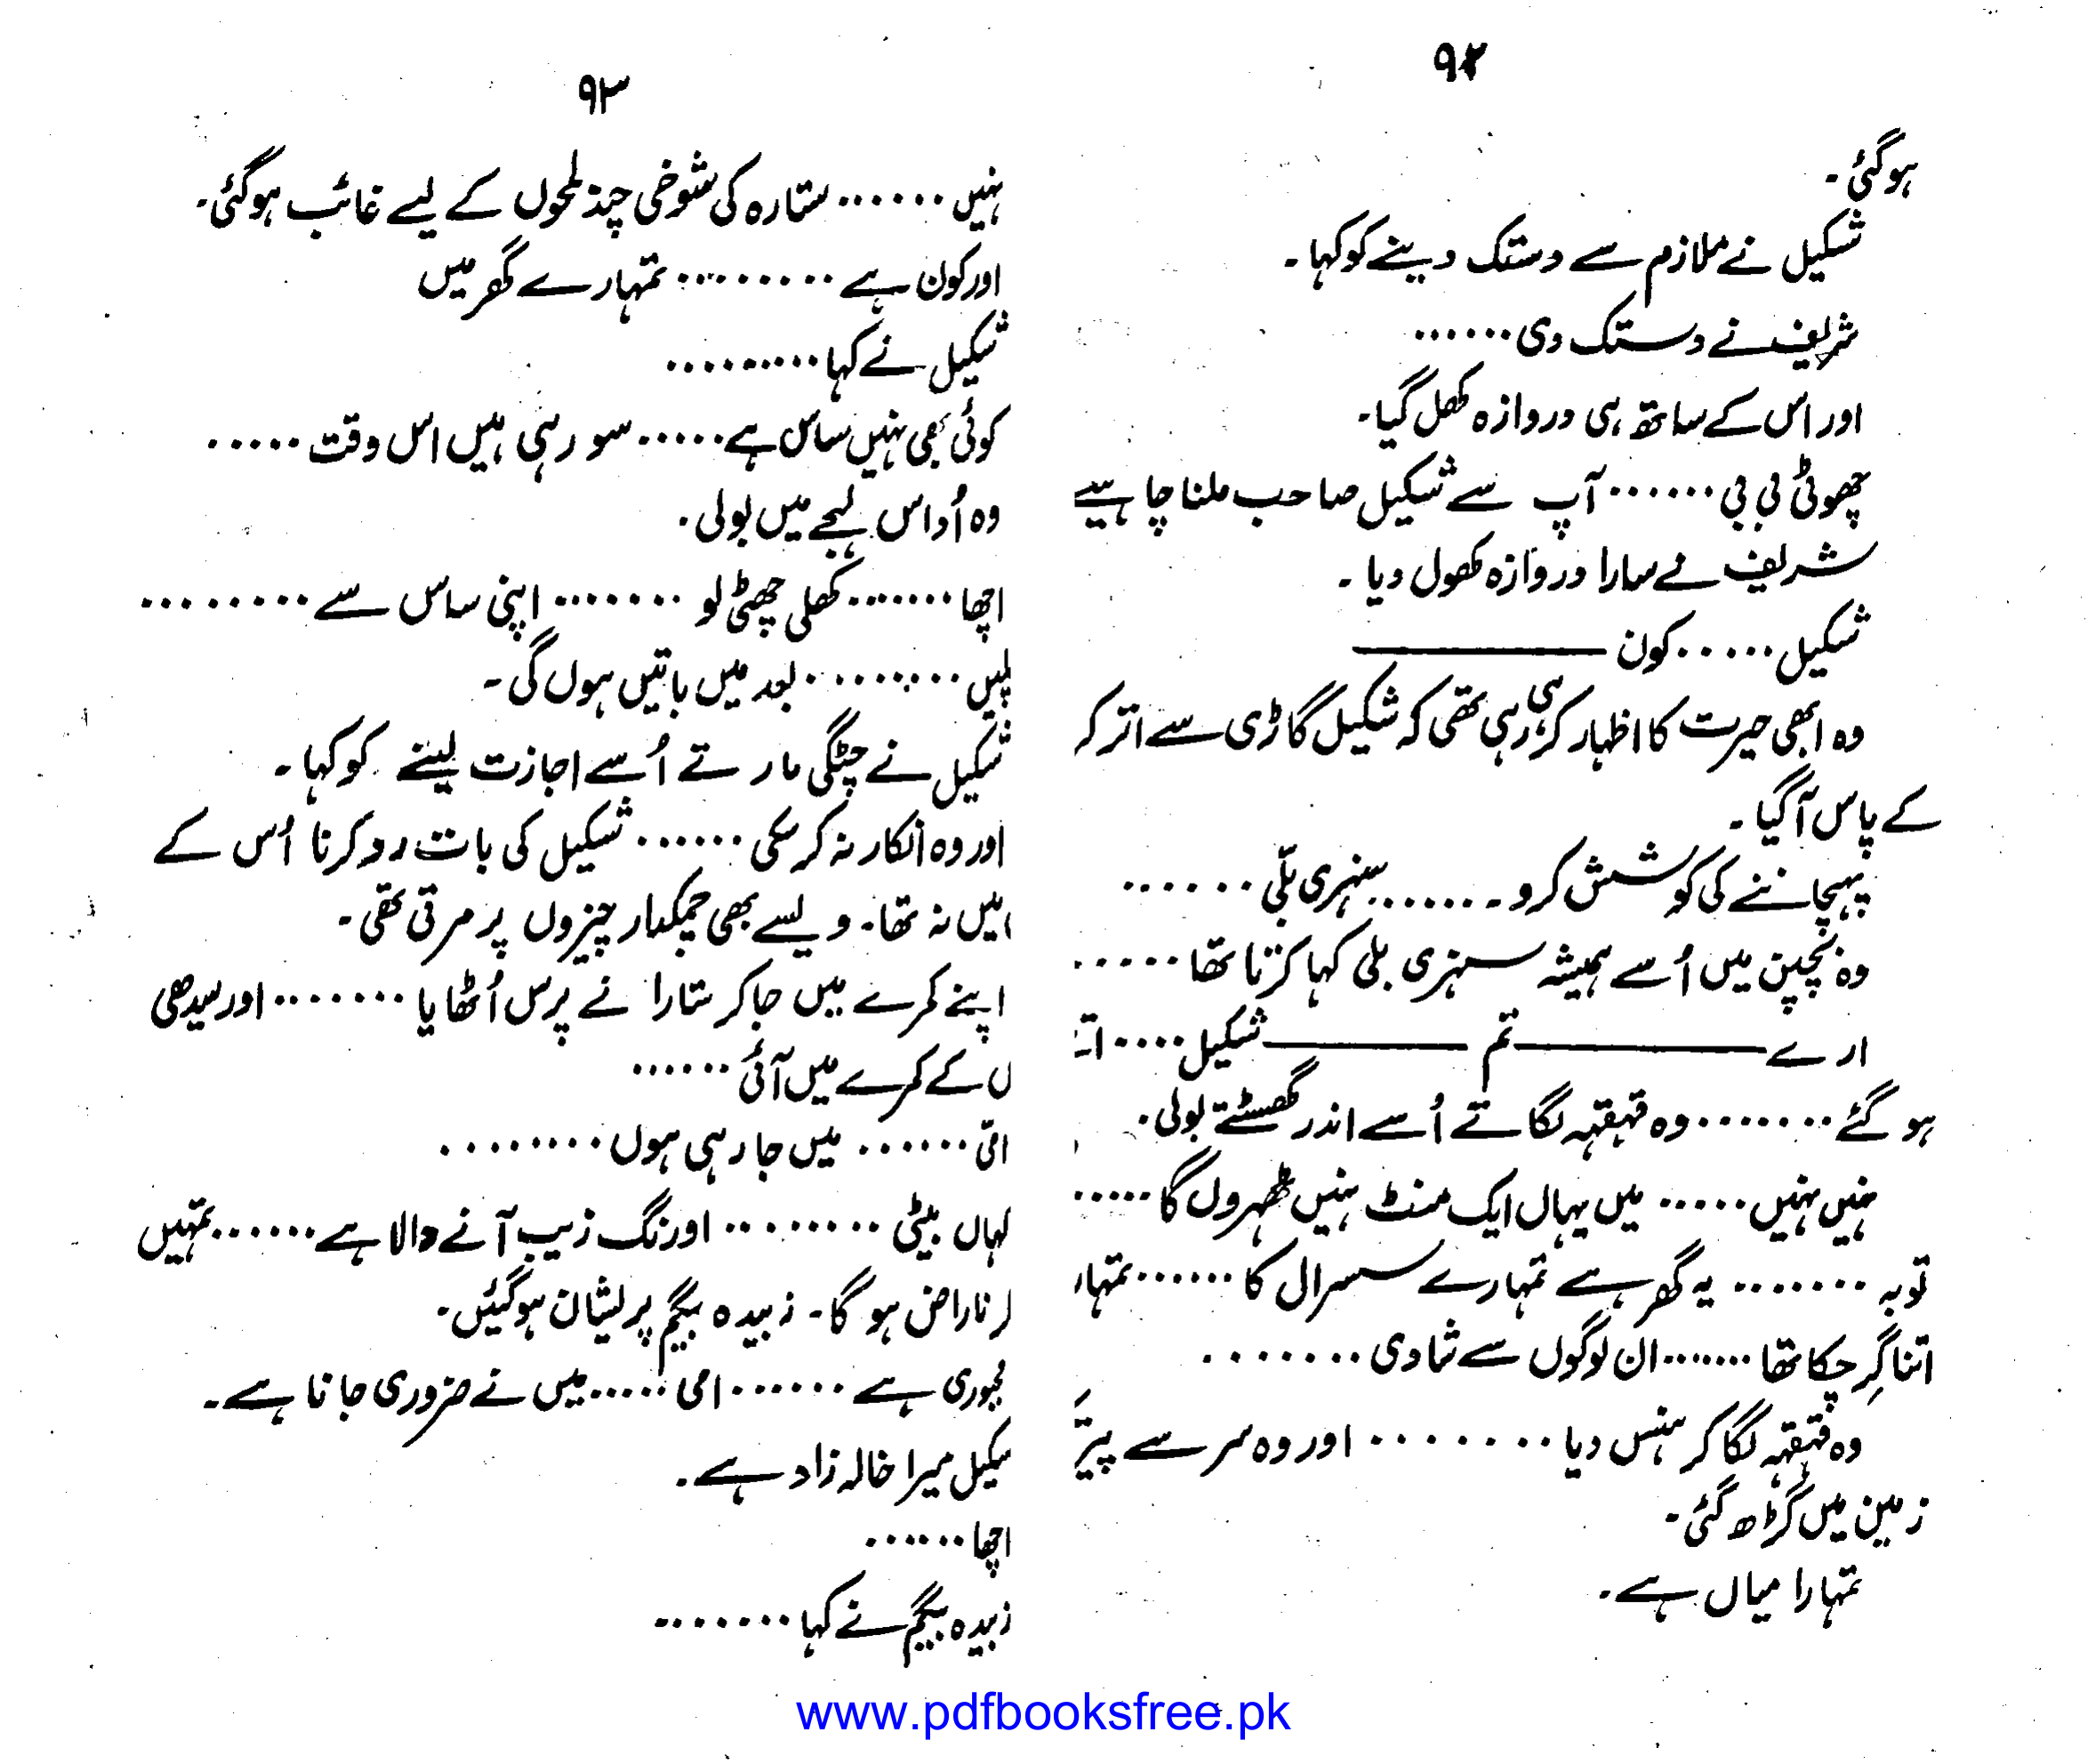 ۹۲
ہوگئی۔
شکیل نے ملازم سے دستک دینے کو کہا۔
شریف نے دستک دی ......
اور اس کے ساتھ ہی دروازہ کھل گیا۔
چھوٹی بی بی ...... آپ سے شکیل صاحب ملنا چاہیے
شریف نے سارا دروازہ کھول دیا۔
شکیل ..... کون ———
وہ ابھی حیرت کا اظہار کر ہی رہی تھی کہ شکیل گاڑی سے اتر کر
کے پاس آگیا۔
پہچاننے کی کوشش کرو۔ ....... سنہری بلّی ......
وہ بچپن میں اُسے ہمیشہ سنہری بلی کہا کرتا تھا .....
ارے ——— تم ——— شکیل ....
ہو گئے ....... وہ قہقہہ لگاتے اُسے اندر گھسٹتے بولی۔
نہیں نہیں ..... میں یہاں ایک منٹ نہیں ٹھہروں گا .....
توبہ ....... یہ گھر ہے تمہارے سسرال کا ...... تمہار
اتنا گِر چکا تھا ....... ان لوگوں سے شادی .......
وہ قہقہہ لگا کر ہنس دیا ....... اور وہ سر سے پیر
زمین میں گڑھ گئی۔
تمہارا میاں ہے۔
۹۳
نہیں ...... ستارہ کی شوخی چند لمحوں کے لیے غائب ہوگئی۔
اور کون ہے ........ تمہارے گھر میں
شکیل نے کہا .........
کوئی بھی نہیں ساس ہے ..... سو رہی ہیں اس وقت .....
وہ اُداس لہجے میں بولی۔
اچھا ....... کھلی چھٹی لو ....... اپنی ساس سے ........
لیں ........ بعد میں باتیں ہوں گی۔
شکیل نے چٹگی مارتے اُسے اجازت لینے کو کہا۔
اور وہ انکار نہ کر سکی ...... شکیل کی بات رد کرنا اُس کے
میں نہ تھا۔ ویسے بھی چمکدار چیزوں پر مرتی تھی۔
اپنے کمرے میں جا کر ستارا نے پرس اُٹھایا ....... اور سیدھی
ں کے کمرے میں آئی ......
امّی ...... میں جا رہی ہوں ........
کہاں بیٹی ........ اورنگ زیب آنے والا ہے ...... تمہیں
ر ناراض ہو گا۔ زبیدہ بیگم پریشان ہوگئیں۔
مجبوری ہے ...... امی ..... میں نے ضروری جانا ہے۔
شکیل میرا خالہ زاد ہے۔
اچھا ......
زبیدہ بیگم نے کہا .......
www.pdfbooksfree.pk